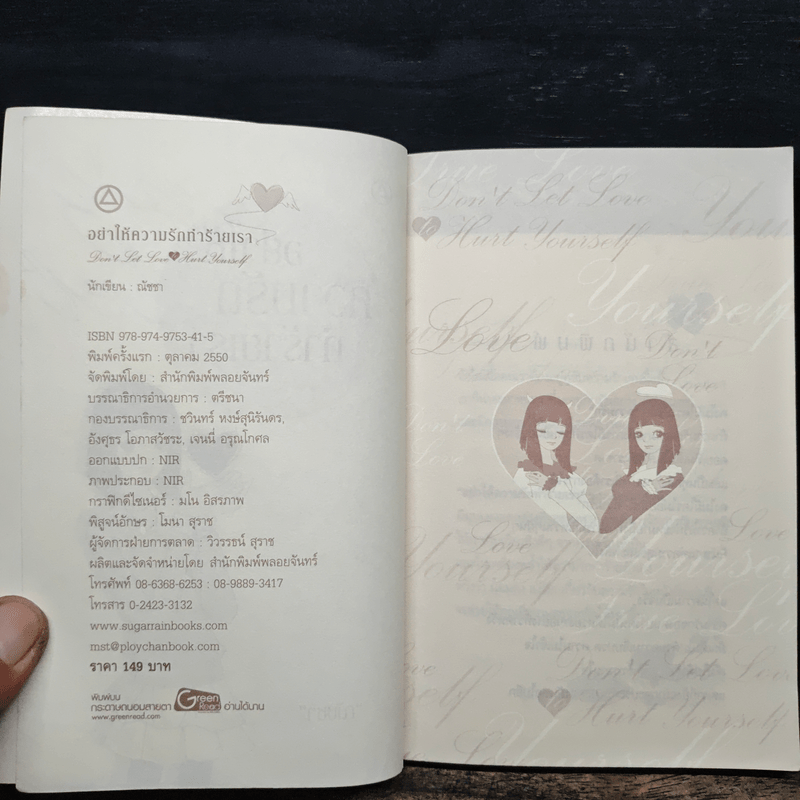 อย่าให้ความรักทำร้ายเรา
Don't Let Love Hurt Yourself
นักเขียน : ณัชชา
ISBN 978-974-9753-41-5
พิมพ์ครั้งแรก : ตุลาคม 2550
จัดพิมพ์โดย : สำนักพิมพ์พลอยจันทร์
บรรณาธิการอำนวยการ : ตรีชนา
กองบรรณาธิการ : ชวินทร์ หงษ์สุนิรันดร,
อังศุธร โอภาสวัชระ, เจนนี่ อรุณโกศล
ออกแบบปก : NIR
ภาพประกอบ : NIR
กราฟิกดีไซเนอร์ : มโน อิสรภาพ
พิสูจน์อักษร : โมนา สุราช
ผู้จัดการฝ่ายการตลาด : วิวรรธน์ สุราช
ผลิตและจัดจำหน่ายโดย สำนักพิมพ์พลอยจันทร์
โทรศัพท์ 08-6368-6253 : 08-9889-3417
โทรสาร 0-2423-3132
www.sugarrainbooks.com
mst@ploychanbook.com
ราคา 149 บาท
พิมพ์บน
กระดาษถนอมสายตา Green Read อ่านได้นาน
www.greenread.com
True Love
Don't Let Love
Hurt Yourself
You
Yourself
Love
Don't
Love
Love
Love
Yourself
Don't Let Love
Hurt Yourself
Yourself